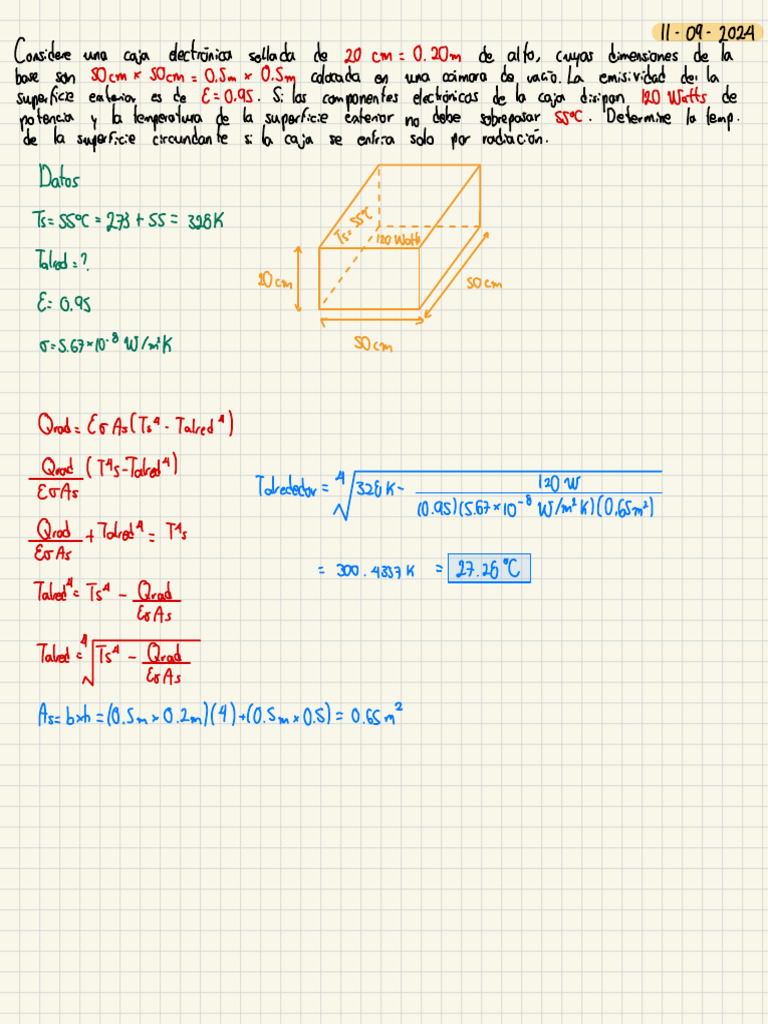 11-09-2024
Considere una caja electrónica sellada de 20 cm = 0.20m de alto, cuyas dimensiones de la
base son 50cm × 50cm = 0.5m × 0.5m colocada en una cámara de vacío. La emisividad de la
superficie exterior es de ε = 0.95. Si los componentes electrónicos de la caja disipan 120 Watts de
potencia y la temperatura de la superficie exterior no debe sobrepasar 55°C. Determine la temp.
de la superficie circundante si la caja se enfria solo por radiación.
Datos
Ts = 55°C = 273 + 55 = 328K
Talred = ?
ε = 0.95
σ = 5.67×10⁻⁸ W/m²K
Ts = 55°C
120 Watts
20 cm
50 cm
50 cm
Qrad = εσAs(Ts⁴ - Talred⁴)
Qrad/εσAs (T⁴s - Talred⁴)
Qrad/εσAs + Talred⁴ = T⁴s
Talred⁴ = Ts⁴ - Qrad/εσAs
Talred = ⁴√(Ts⁴ - Qrad/εσAs)
As = b×h = (0.5m × 0.2m)(4) + (0.5m × 0.5) = 0.65m²
Talrededor = ⁴√(328K - 120 W/(0.95)(5.67×10⁻⁸ W/m²K)(0.65m²))
= 300.4337 K = 27.28°C